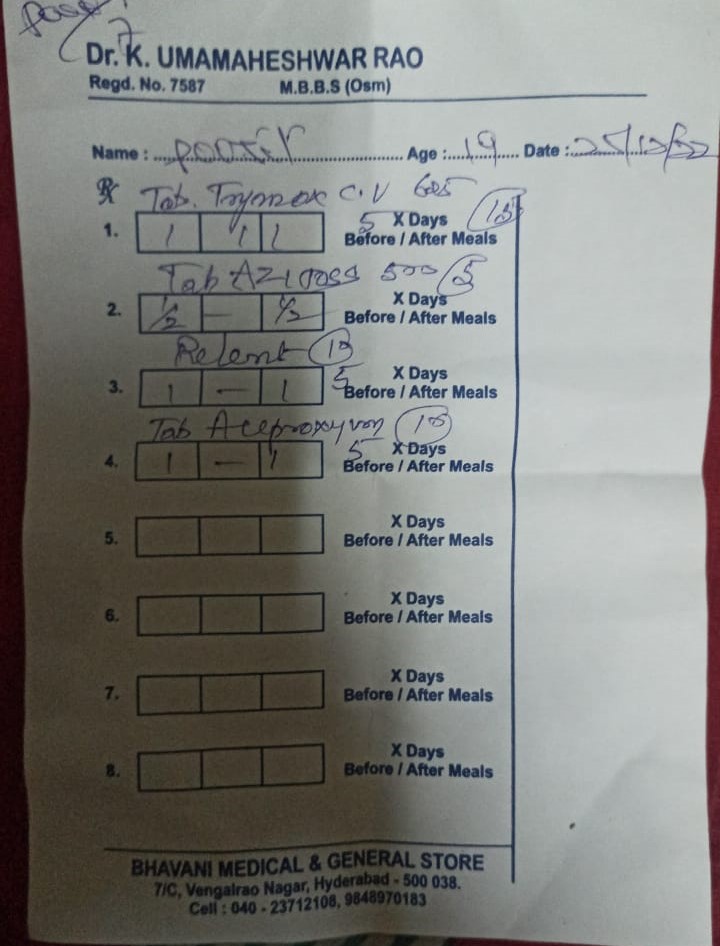 Dr. K. UMAMAHESHWAR RAO
Regd. No. 7587 M.B.B.S (Osm)
Name : Age : 19 Date :
Rx Tab. Trymox C.V 625
1. 1 1 1 5 X Days
Before / After Meals
Tab 500 5
2. 1/2 — 1/2 X Days
Before / After Meals
Relent 10
3. 1 — 1 5 X Days
Before / After Meals
Tab Aceproxyvon 10
4. 1 — 1 5 X Days
Before / After Meals
5. X Days
Before / After Meals
6. X Days
Before / After Meals
7. X Days
Before / After Meals
8. X Days
Before / After Meals
BHAVANI MEDICAL & GENERAL STORE
7/C, Vengalrao Nagar, Hyderabad - 500 038.
Cell : 040 - 23712108, 9848970183